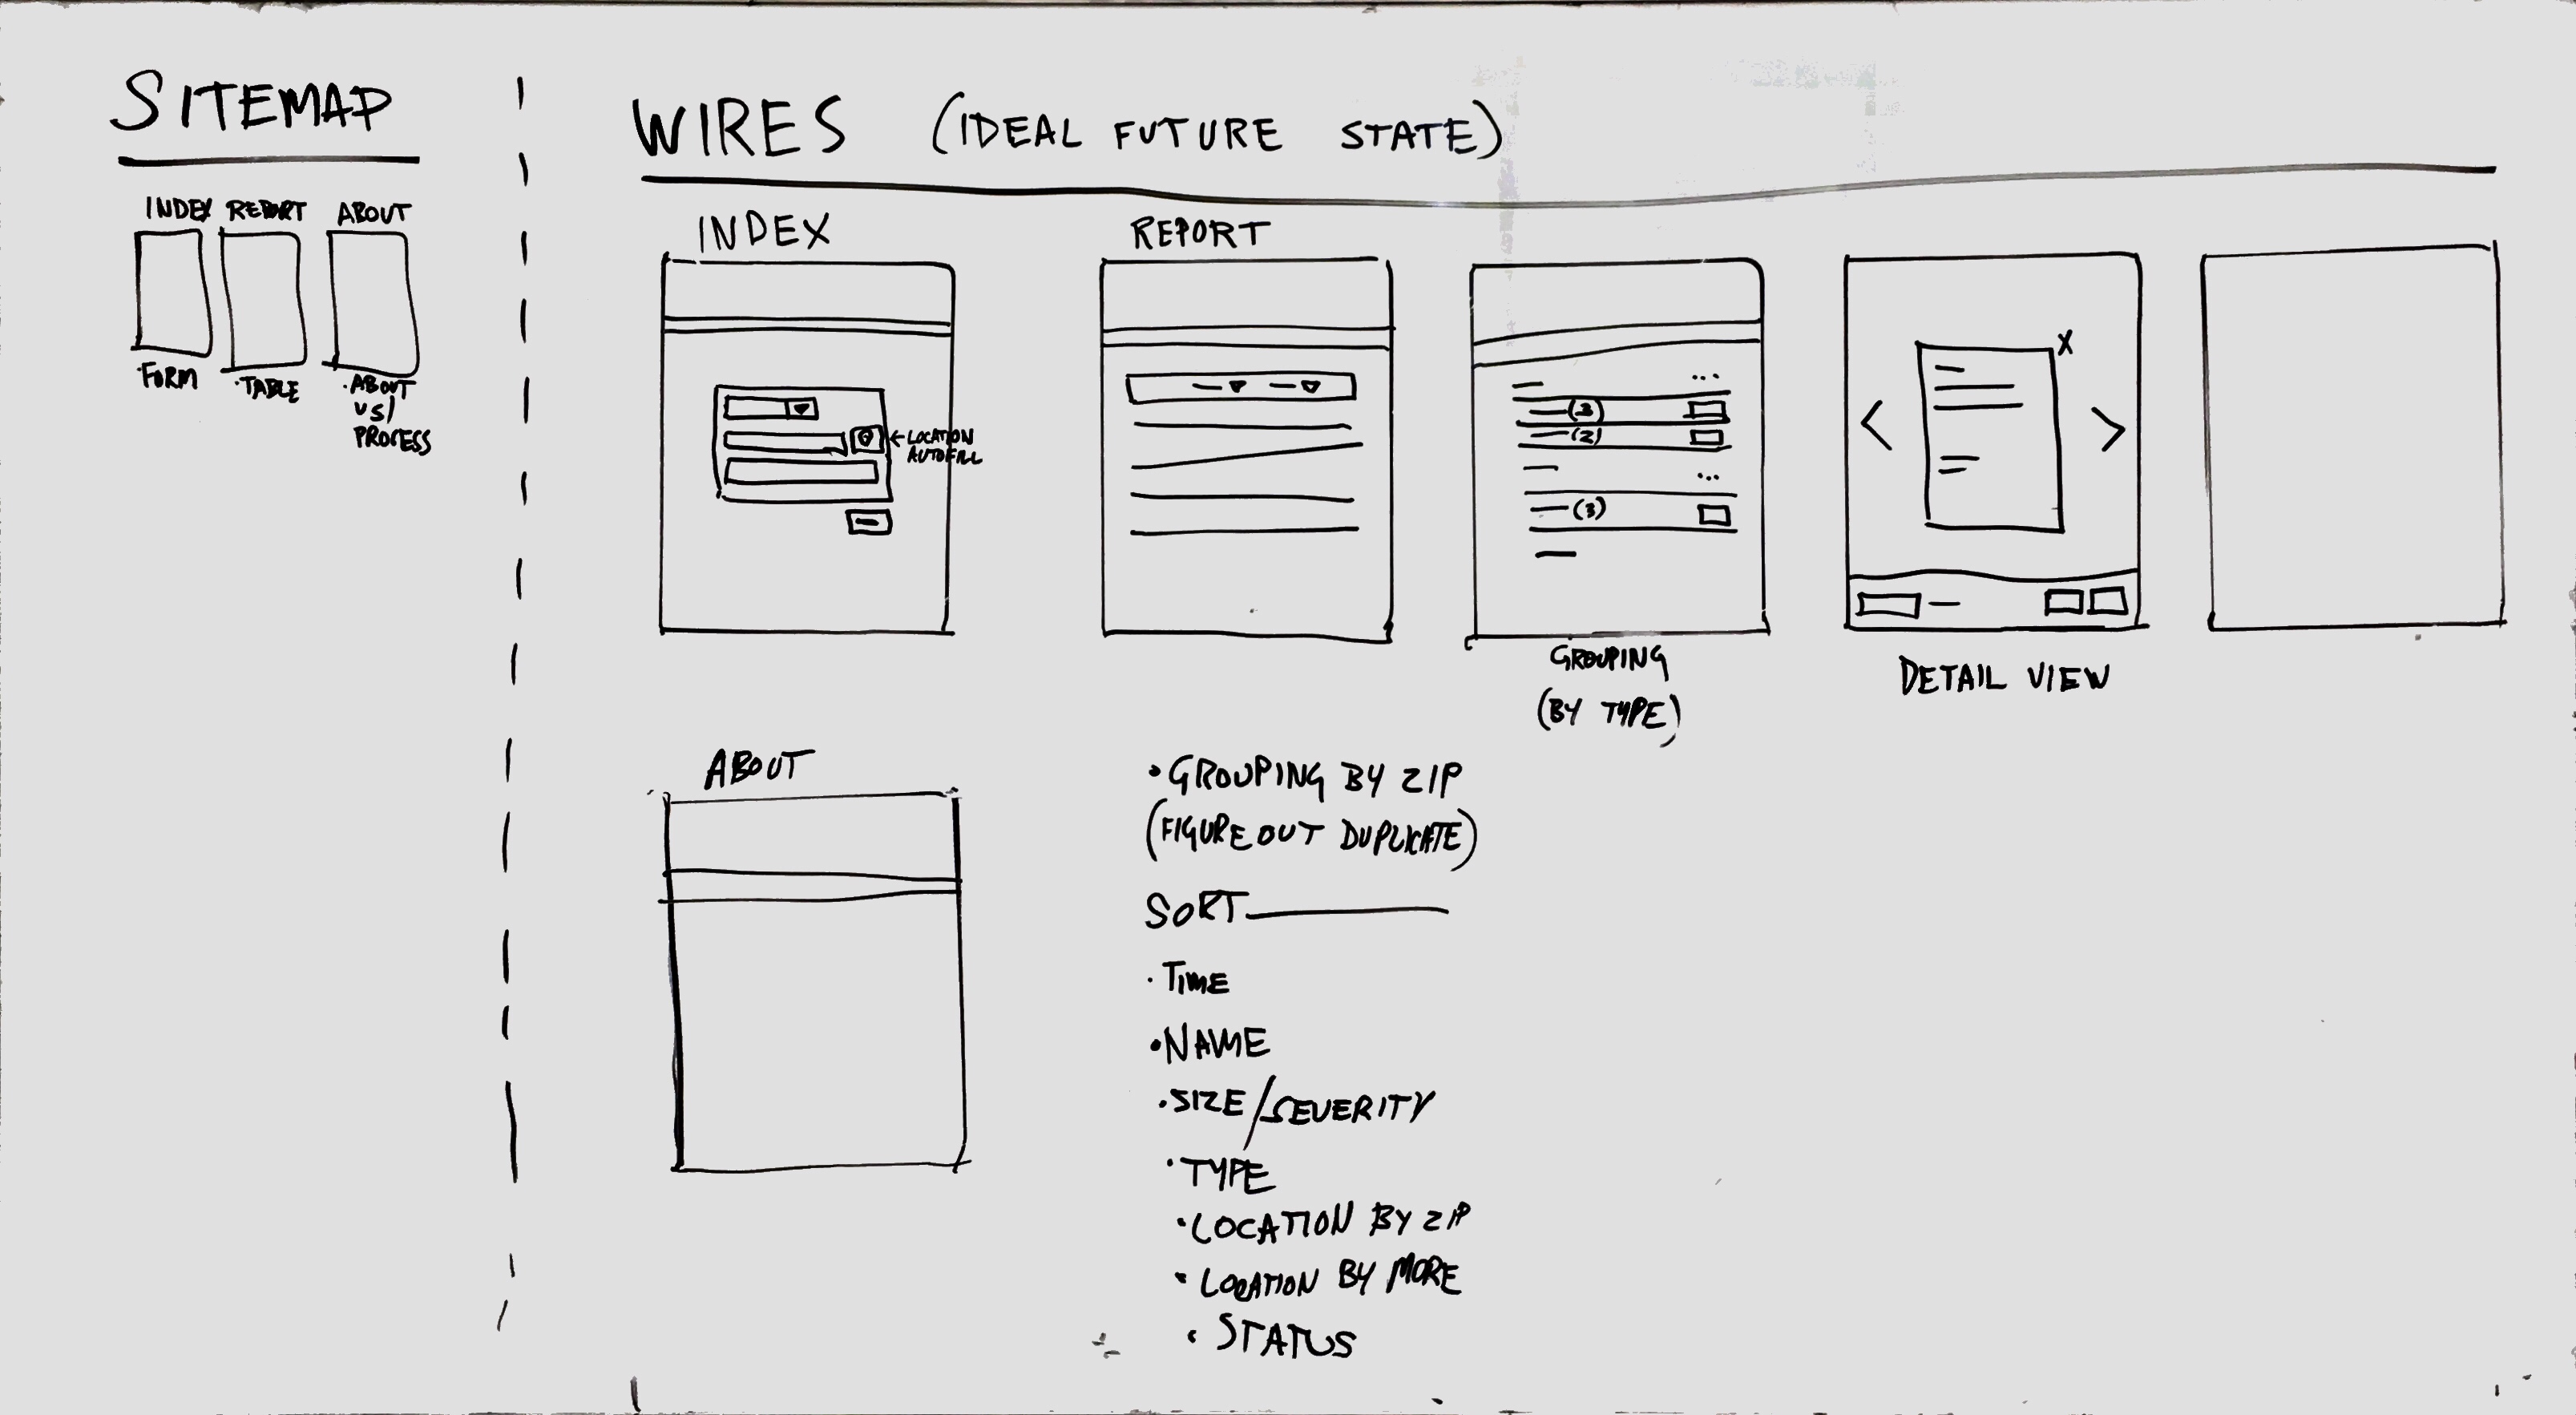 SITEMAP
INDEX REPORT ABOUT
·FORM ·TABLE ·ABOUT
US/
PROCESS
WIRES (IDEAL FUTURE STATE)
INDEX
←LOCATION
AUTOFILL
REPORT
(3)
(2)
(3)
GROUPING
(BY TYPE)
X
< >
DETAIL VIEW
ABOUT
·GROUPING BY ZIP
(FIGURE OUT DUPLICATE)
SORT
·TIME
·NAME
·SIZE/SEVERITY
·TYPE
·LOCATION BY ZIP
·LOCATION BY MORE
·STATUS